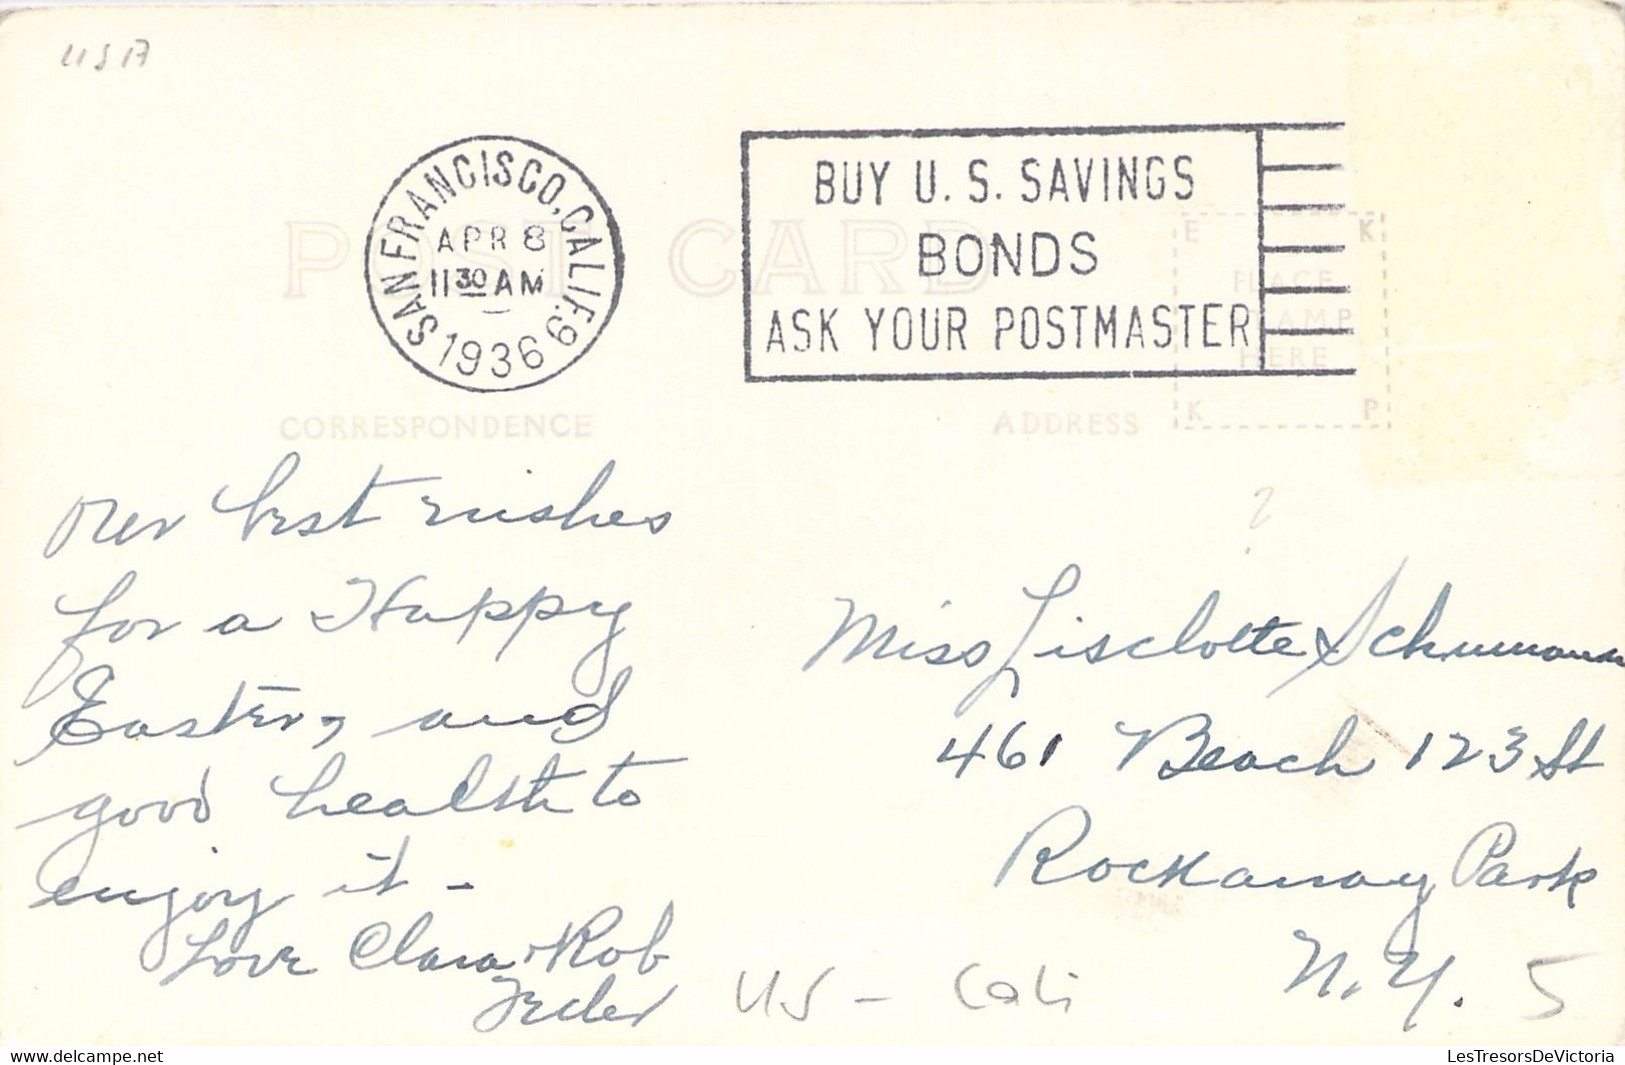 USA
SAN FRANCISCO, CALIF. 9
APR 8
11 30 AM
1936
BUY U. S. SAVINGS
BONDS
ASK YOUR POSTMASTER
POST CARD
E K
PLACE
STAMP
HERE
K P
CORRESPONDENCE
ADDRESS
Our best wishes
for a Happy
Easter, and
good health to
enjoy it -
Love Clara + Rob
?
Miss Liselotte Schumann
461 Beach 123 St
Rockaway Park
N.Y.
5
US - Cali
LesTresorsDeVictoria